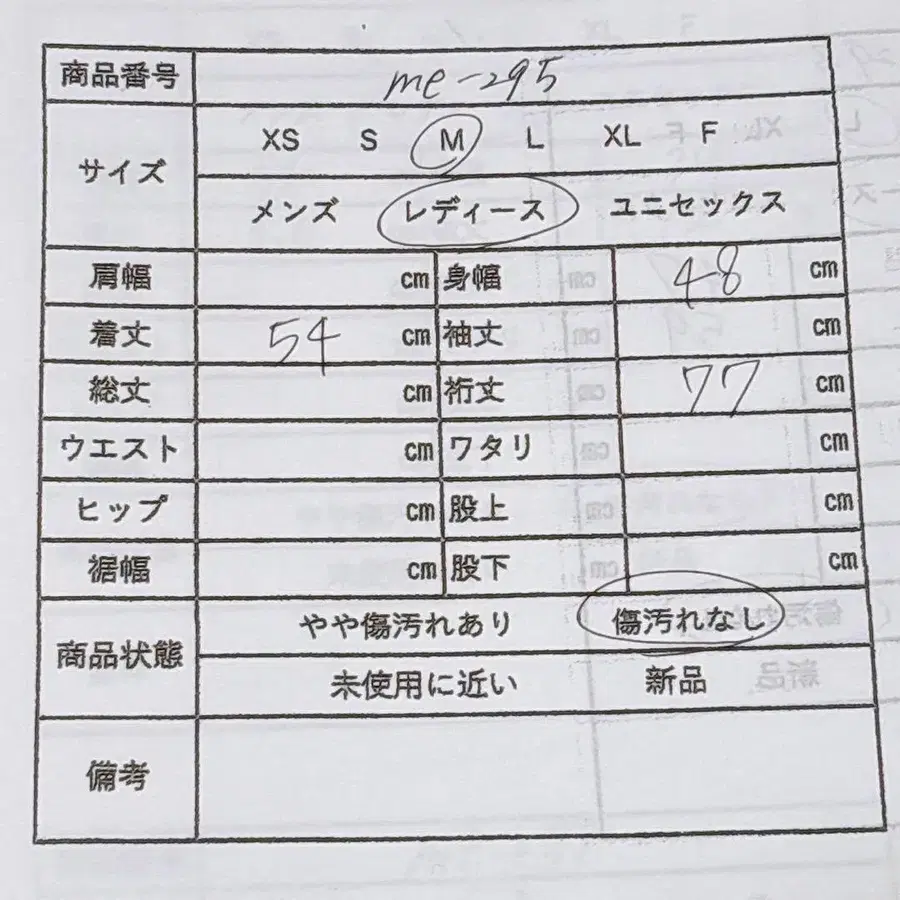 商品番号 me-295
サイズ XS S M L XL F
メンズ レディース ユニセックス
肩幅 cm 身幅 48 cm
着丈 54 cm 袖丈 cm
総丈 cm 裄丈 77 cm
ウエスト cm ワタリ cm
ヒップ cm 股上 cm
裾幅 cm 股下 cm
商品状態 やや傷汚れあり 傷汚れなし
未使用に近い 新品
備考